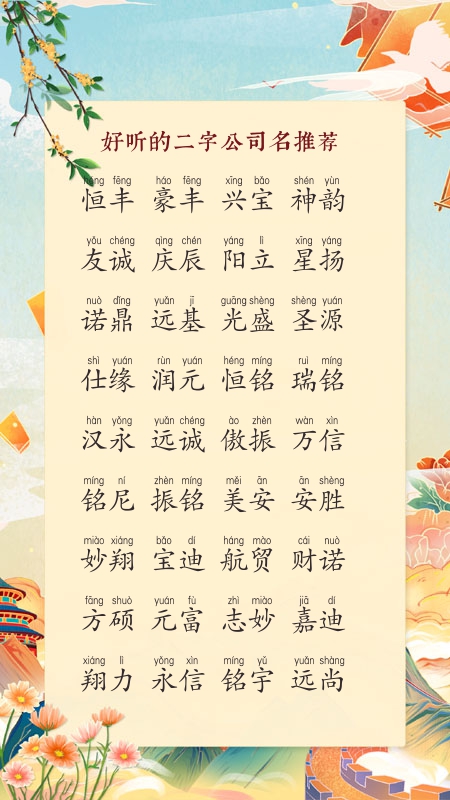 好听的二字公司名推荐
héng fēng háo fēng xīng bǎo shén yùn
恒丰 豪丰 兴宝 神韵
yǒu chéng qìng chén yáng lì xīng yáng
友诚 庆辰 阳立 星扬
nuò dǐng yuǎn jī guāng shèng shèng yuán
诺鼎 远基 光盛 圣源
shì yuán rùn yuán héng míng ruì míng
仕缘 润元 恒铭 瑞铭
hàn yǒng yuǎn chéng ào zhèn wàn xìn
汉永 远诚 傲振 万信
míng ní zhèn míng měi ān ān shèng
铭尼 振铭 美安 安胜
miào xiáng bǎo dí háng mào cái nuò
妙翔 宝迪 航贸 财诺
fāng shuò yuán fù zhì miào jiā dí
方硕 元富 志妙 嘉迪
xiáng lì yǒng xìn míng yǔ yuǎn shàng
翔力 永信 铭宇 远尚